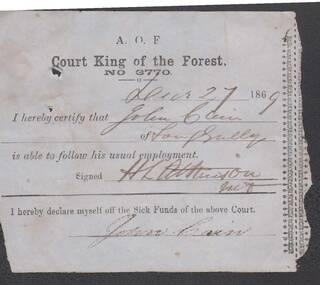 A. O. F
Court King of the Forest.
NO 3770.
27 1869
I hereby certify that John Cain
of Long Gully
is able to follow his usual employment.
Signed H L Atkinson
I hereby declare myself off the Sick Funds of the above Court.
John Cain